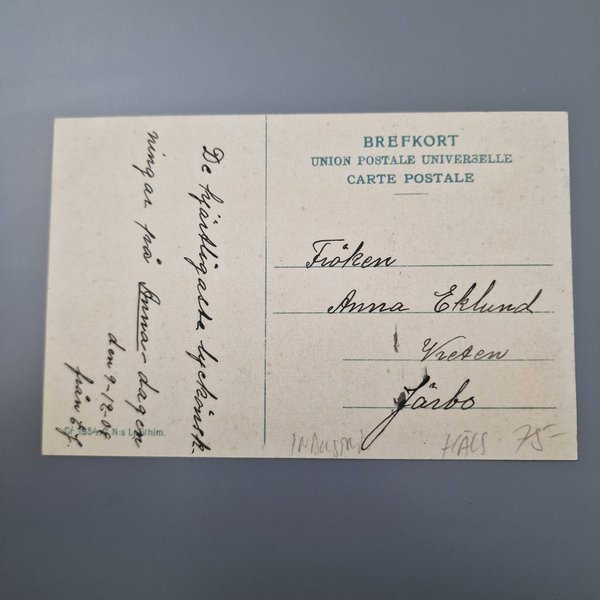 BREFKORT
UNION POSTALE UNIVERSELLE
CARTE POSTALE
Fröken
Anna Eklund
Vreten
Järbo
De hjärtligaste lyckönsk-
ningar på Anna-dagen
den 9-12-09
från
75-